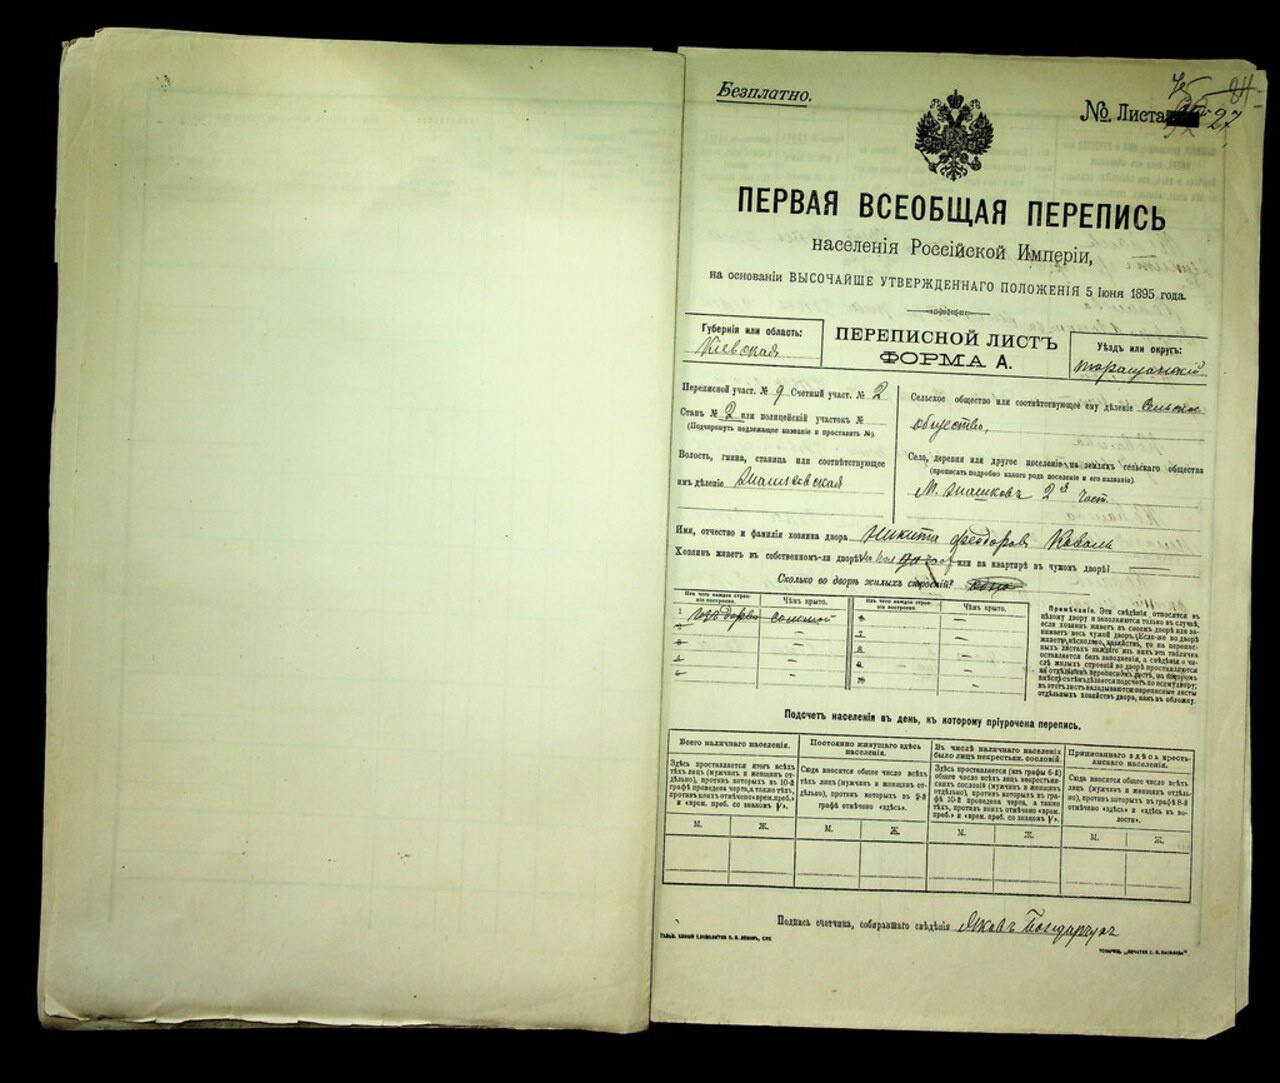 Безплатно.
№. Листа 27
ПЕРВАЯ ВСЕОБЩАЯ ПЕРЕПИСЬ
населенія Россійской Имперіи,
на основаніи ВЫСОЧАЙШЕ УТВЕРЖДЕННАГО ПОЛОЖЕНІЯ 5 Іюня 1895 года.
Губернія или область:
Кіевская
ПЕРЕПИСНОЙ ЛИСТЪ
ФОРМА А.
Уѣздъ или округъ:
Таращанскій
Переписной участ. № 9 Счетный участ. № 2
Станъ № 2 или полицейскій участокъ №
(Подчеркнуть подлежащее названіе и проставить №).
Волость, гмина, станица или соотвѣтствующее
имъ дѣленіе
Сельское общество или соотвѣтствующее ему дѣленіе Сельское
общество,
Село, деревня или другое поселеніе на земляхъ сельскаго общества
(прописать подробно какого рода поселеніе и его названіе).
М. 2я част.
Имя, отчество и фамилія хозяина двора Никита Федоровъ Коваль
Хозяинъ живетъ въ собственномъ-ли дворѣ или на квартирѣ въ чужомъ дворѣ?
Сколько во дворѣ жилыхъ строеній?
Изъ чего каждое строеніе построено.
Чѣмъ крыто.
Изъ чего каждое строеніе построено.
Чѣмъ крыто.
1 соломой
Примѣчаніе. Эти свѣдѣнія относятся къ
цѣлому двору и заполняются только въ случаѣ,
если хозяинъ живетъ въ своемъ дворѣ или занимаетъ
весь чужой дворъ. Если-же во дворѣ
живетъ нѣсколько хозяйствъ, то на переписныхъ
листахъ каждаго изъ нихъ эта табличка
оставляется безъ заполненія, а свѣдѣнія о числѣ
жилыхъ строеній во дворѣ проставляются
на отдѣльномъ переписномъ листѣ, на которомъ
вмѣстѣ съ тѣмъ дѣлается подсчетъ по всему двору;
въ этотъ листъ вкладываются переписные листы
отдѣльныхъ хозяйствъ двора, какъ въ обложку.
Подсчетъ населенія въ день, къ которому пріурочена перепись.
Всего наличнаго населенія.
Постоянно живущаго здѣсь населенія.
Въ числѣ наличнаго населенія было лицъ некрестьян. сословій.
Приписаннаго здѣсь крестьянскаго населенія.
Здѣсь проставляется итогъ всѣхъ тѣхъ лицъ (мужчинъ и женщинъ отдѣльно), противъ которыхъ въ 10-й графѣ проведена черта, а также тѣхъ, противъ коихъ отмѣчено «врем. преб.» и «врем. преб. со знакомъ V».
Сюда вносится общее число всѣхъ тѣхъ лицъ (мужчинъ и женщинъ отдѣльно), противъ которыхъ въ 9-й графѣ отмѣчено «здѣсь».
Здѣсь проставляется (изъ графы 6-й) общее число всѣхъ лицъ некрестьянскихъ сословій (мужчинъ и женщинъ отдѣльно), противъ которыхъ въ графѣ 10-й проведена черта, а также тѣхъ, противъ коихъ отмѣчено «врем. преб.» и «врем. преб. со знакомъ V».
Сюда вносится общее число всѣхъ лицъ (мужчинъ и женщинъ отдѣльно), противъ которыхъ въ графѣ 8-й отмѣчено «здѣсь» и «здѣсь къ волости».
М. Ж. М. Ж. М. Ж. М. Ж.
Подпись счетчика, собиравшаго свѣдѣнія Яковъ Бондарчукъ